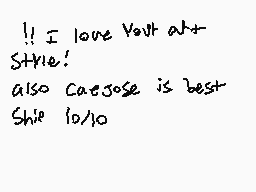 !! I love your art
style!
also caejose is best
ship 10/10